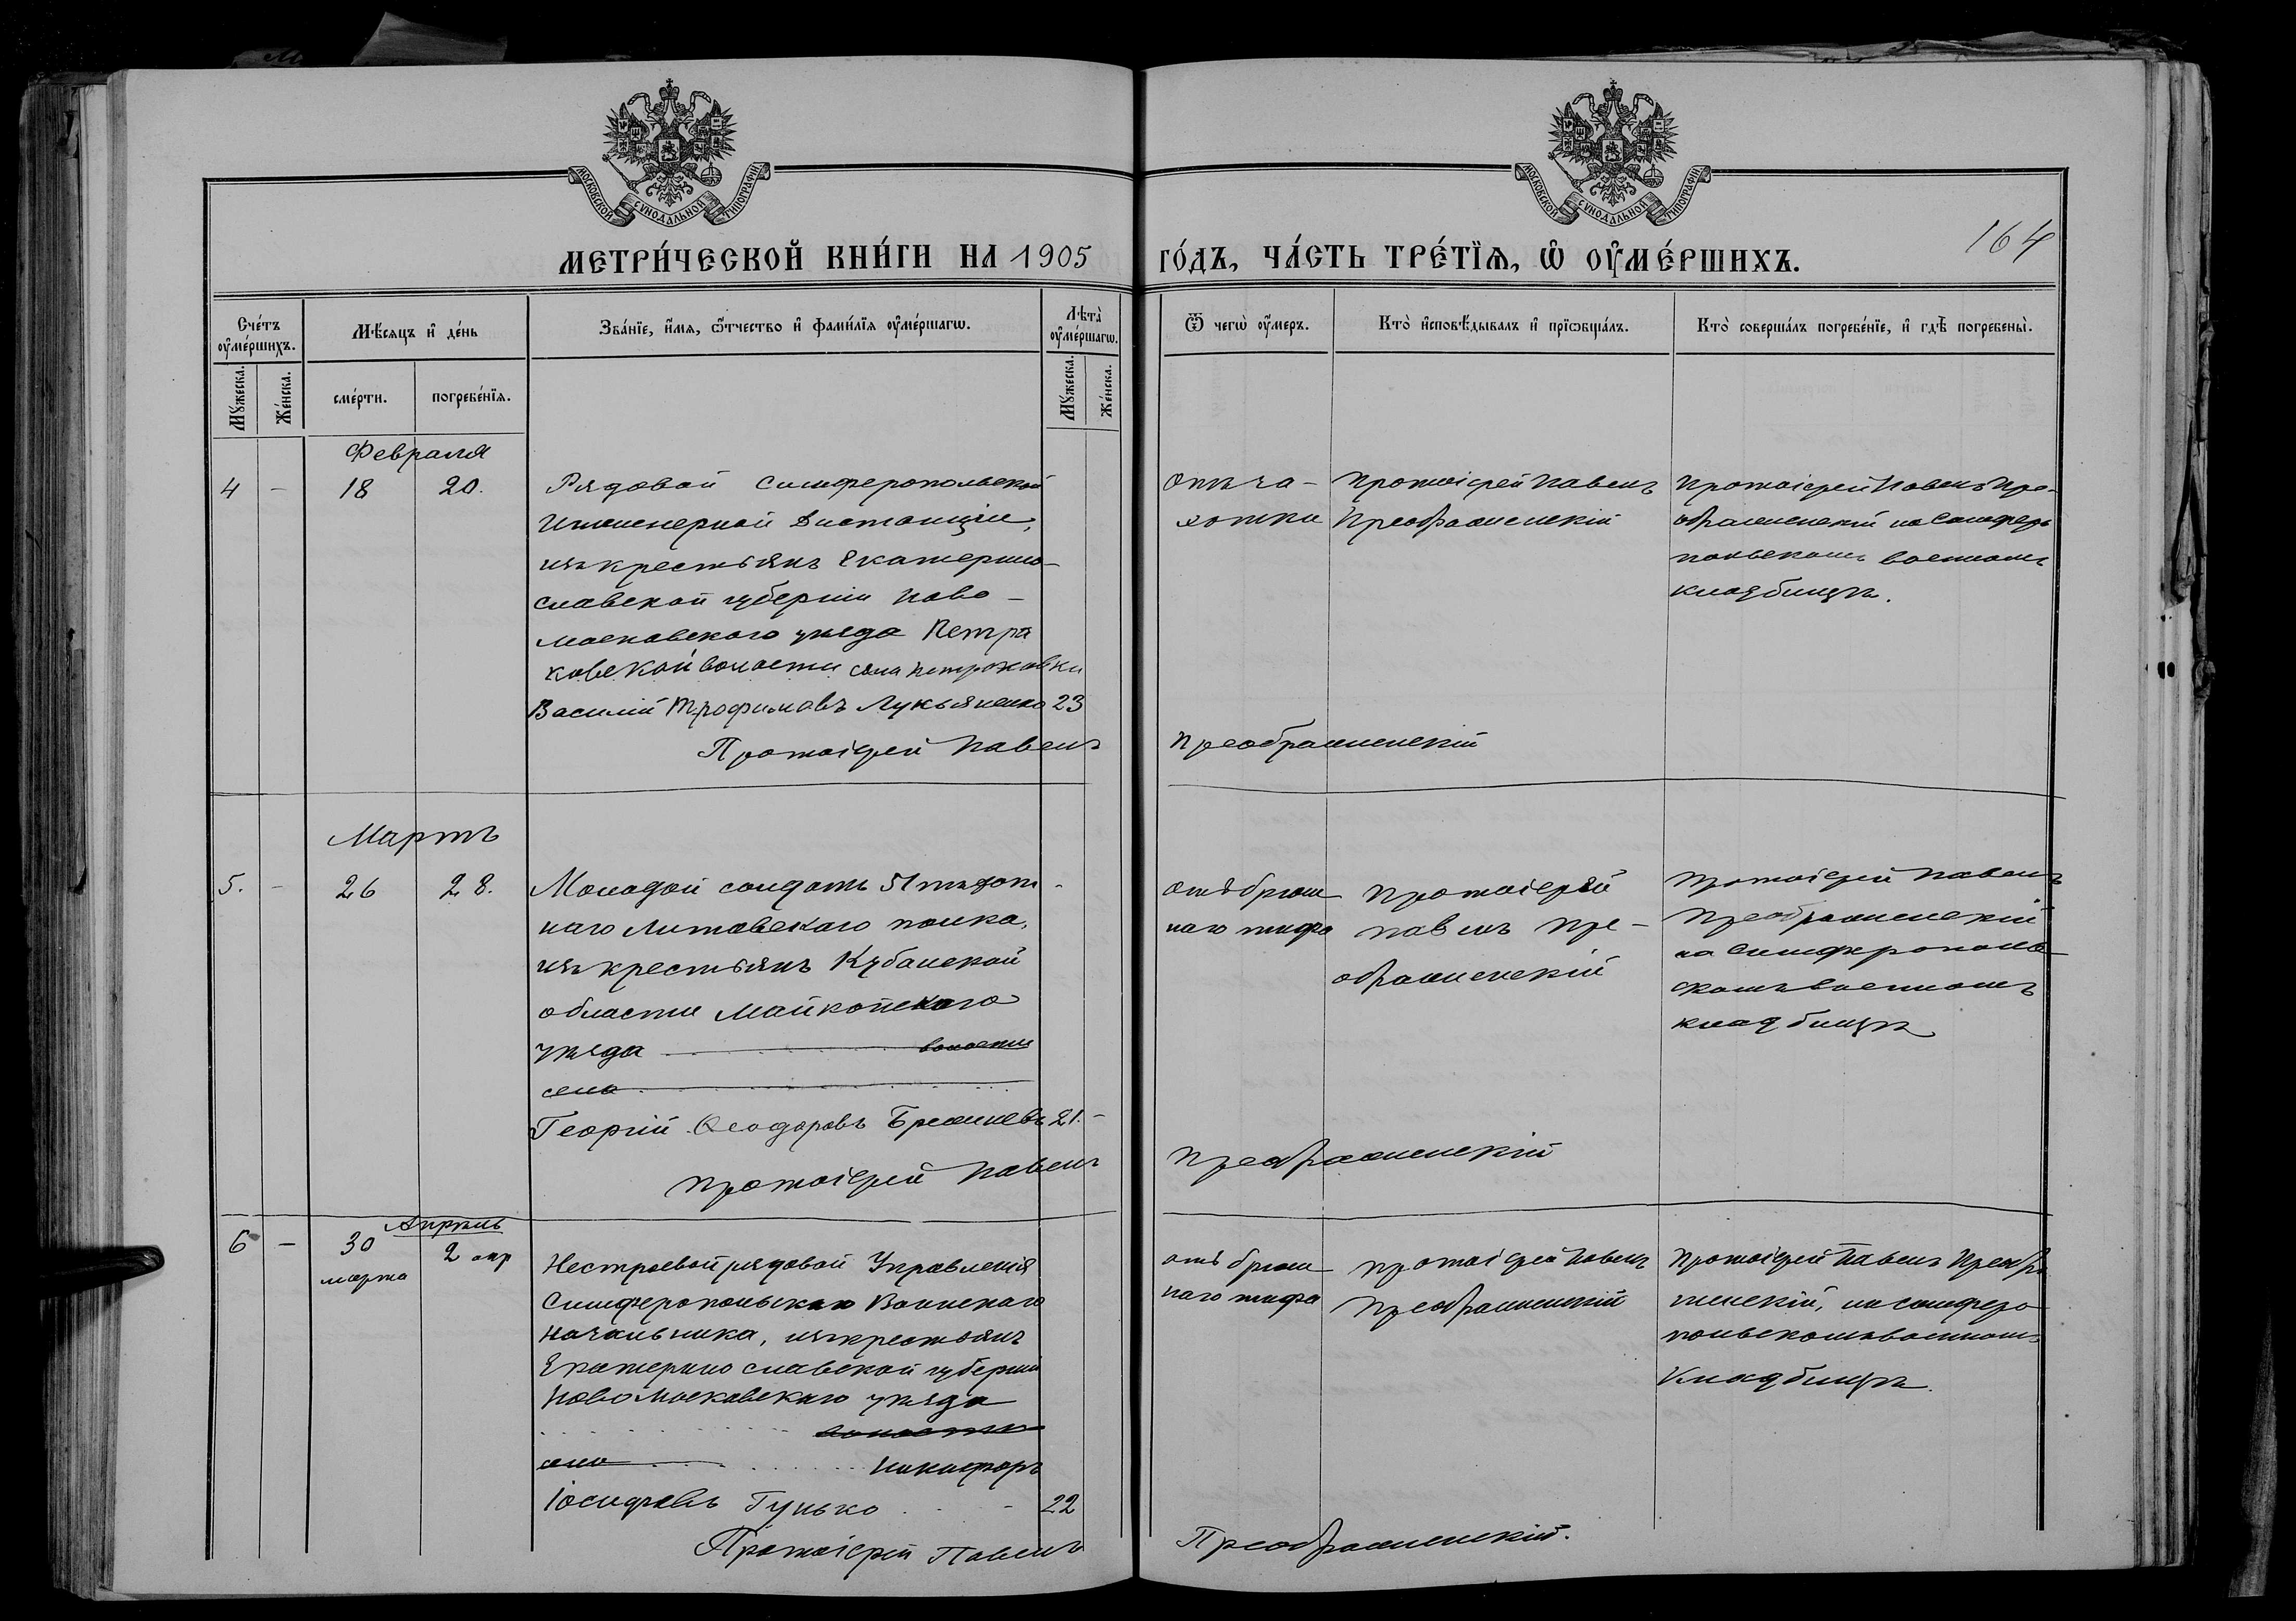 МОСКОВСКОЙ СѴНОДАЛЬНОЙ ТИПОГРАФІИ
МОСКОВСКОЙ СѴНОДАЛЬНОЙ ТИПОГРАФІИ
164
МЕТРИ́ЧЕСКОЙ КНИ́ГИ НА 1905 ГО́ДЪ, ЧА́СТЬ ТРЕ́ТЇѦ, Ѡ҆ ОУ҆МЕ́РШИХЪ.
Сче́тъ оу҆ме́ршихъ.
Мѣ́сѧцъ и҆ де́нь
Зва́нїе, и҆́мѧ, ѻ҆́тчество и҆ фами́лїѧ оу҆ме́ршагѡ.
Лѣ́та оу҆ме́ршагѡ.
Ѿ чегѡ̀ оу҆́меръ.
Кто̀ и҆сповѣ́дывалъ и҆ прїѡбща́лъ.
Кто̀ соверша́лъ погребе́нїе, и҆ гдѣ̀ погребены̀.
Мꙋ́жеска.
Же́нска.
сме́рти.
погребе́нїѧ.
Мꙋ́жеска.
Же́нска.
Февраля
4 - 18 20.
Рядовой Симферопольской
Инженерной Дистанціи,
изъ крестьянъ Екатерино-
славской губерніи Ново-
московскаго уѣзда Петра
ковской волости села Петраковки
Василій Трофимовъ Лукьяненко 23
Отъ ча-
хотки
Протоіерей Павелъ
Преображенскій
Протоіерей Павелъ Пре-
ображенскій на Симферо
польскомъ военномъ
кладбищѣ.
Протоіерей Павелъ Преображенскій
Мартъ
5. - 26 28.
Молодой солдатъ 51 пѣхот
наго Литовскаго полка,
изъ крестьянъ Кубанской
области Майкопскаго
уѣзда волости
село
Георгій Ѳеодоровъ 21. -
отъ брюш
наго тифа
Протоіерей
Павелъ Пре-
ображенскій
Протоіерей Павелъ
Преображенскій
на Симферополь
скомъ военномъ
кладбищѣ
Протоіерей Павелъ Преображенскій
Апрѣль
6 - 30 марта 2 апр
Нестроевой рядовой Управленія
Симферопольскаго Воинскаго
Начальника, изъ крестьянъ
Екатеринославской губерніи
Новомосковскаго уѣзда
волости
село Никифоръ
Іосифовъ Гунько - 22
отъ брюш
наго тифа
Протоіерей Павелъ
Преображенскій
Протоіерей Павелъ Преобра
женскій, на Симферо
польскомъ военномъ
Кладбищѣ.
Протоіерей Павелъ Преображенскій.